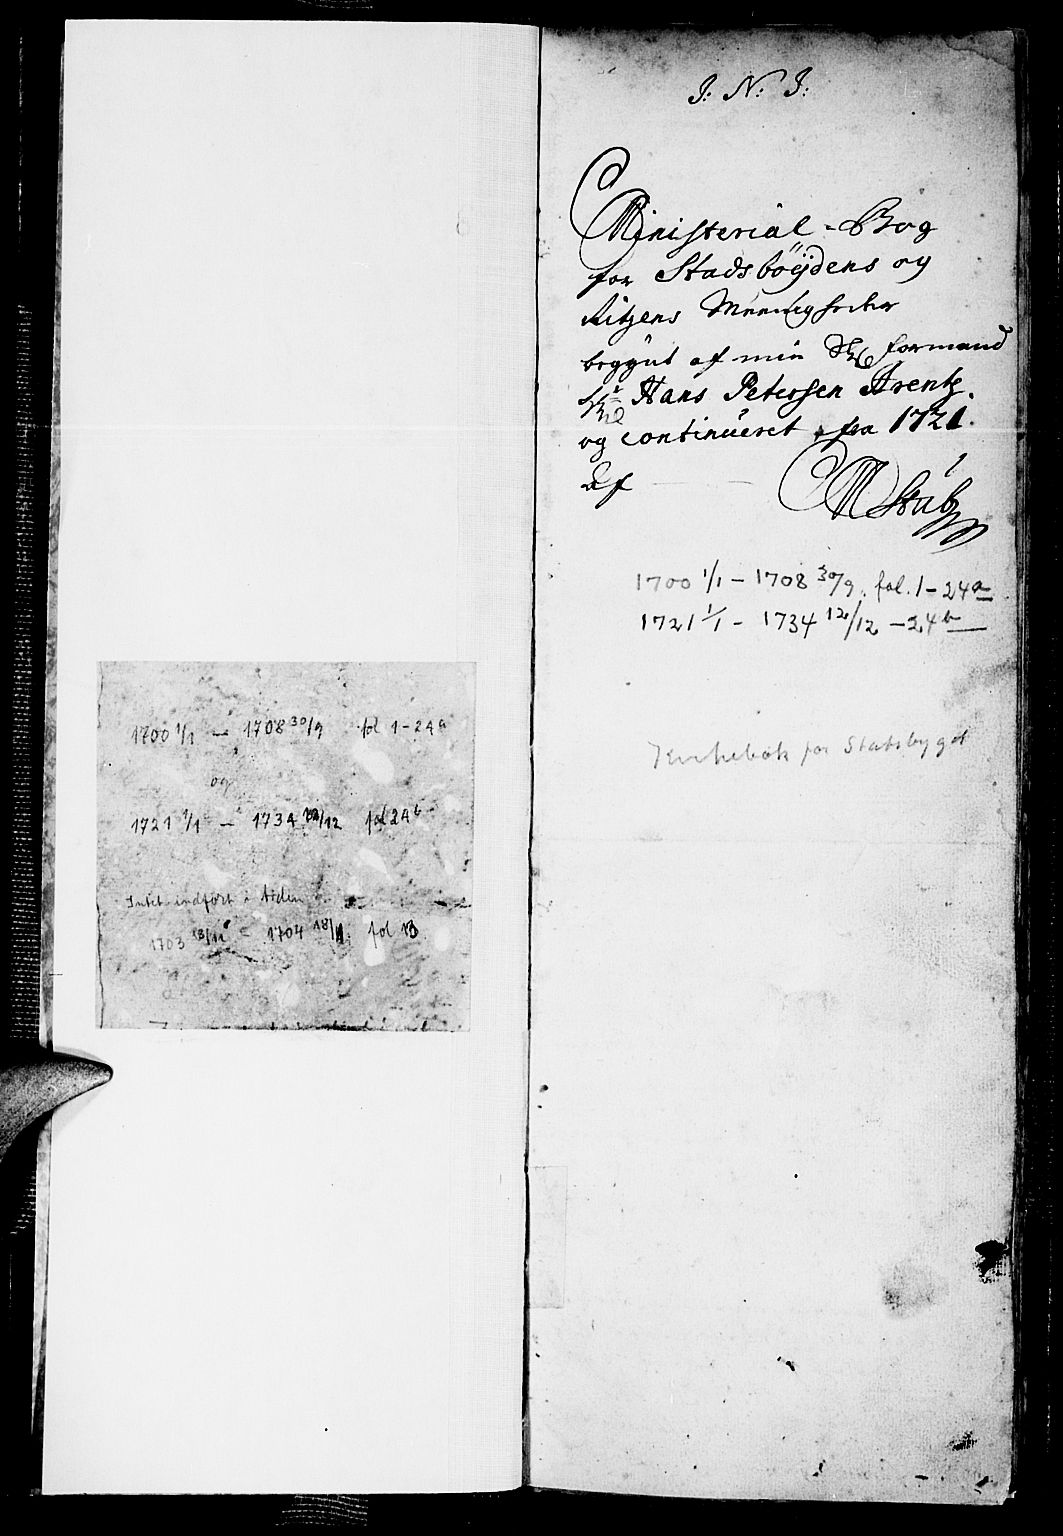 1700 1/1 — 1708 30/9 fol 1-24a
og
1721 1/1 — 1734 12/12 fol 24b
Intet indført i tiden
1703 — 1704 18/11 fol 13
J: N: J:
Ministerial-Bog
for Stadsböÿdens og
Ritzens Meenigheder
begÿnt af min formand
Hans Petersen Arentz.
og continueret fra 1721.
af
Stub
1700 1/1 – 1708 30/9. fol. 1–24a
1721 1/1 – 1734 12/12 – 24b
Kirkebok for Stadsbygd